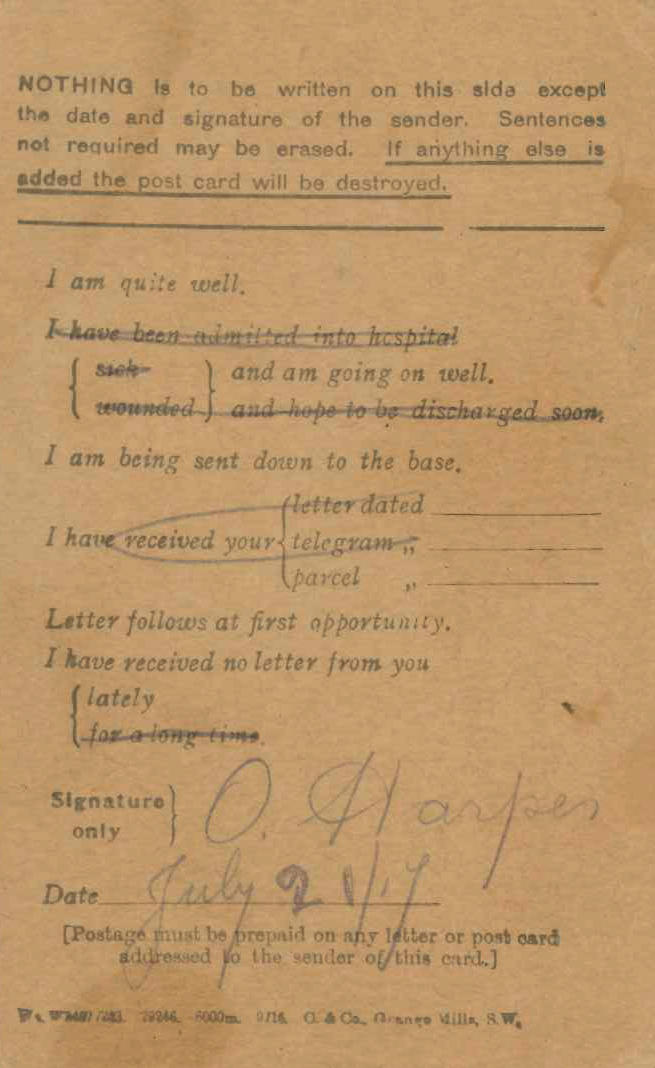 NOTHING is to be written on this side except
the date and signature of the sender. Sentences
not required may be erased. If anything else is
added the post card will be destroyed.
I am quite well.
I have been admitted into hospital
sick } and am going on well.
wounded } and hope to be discharged soon.
I am being sent down to the base.
letter dated
I have received your { telegram „
parcel „
Letter follows at first opportunity.
I have received no letter from you
lately
for a long time.
Signature only } O. Harper
Date July 21/17
[Postage must be prepaid on any letter or post card
addressed to the sender of this card.]
29246. 6000m. 9/16. C. & Co., Grange Mills, S.W.